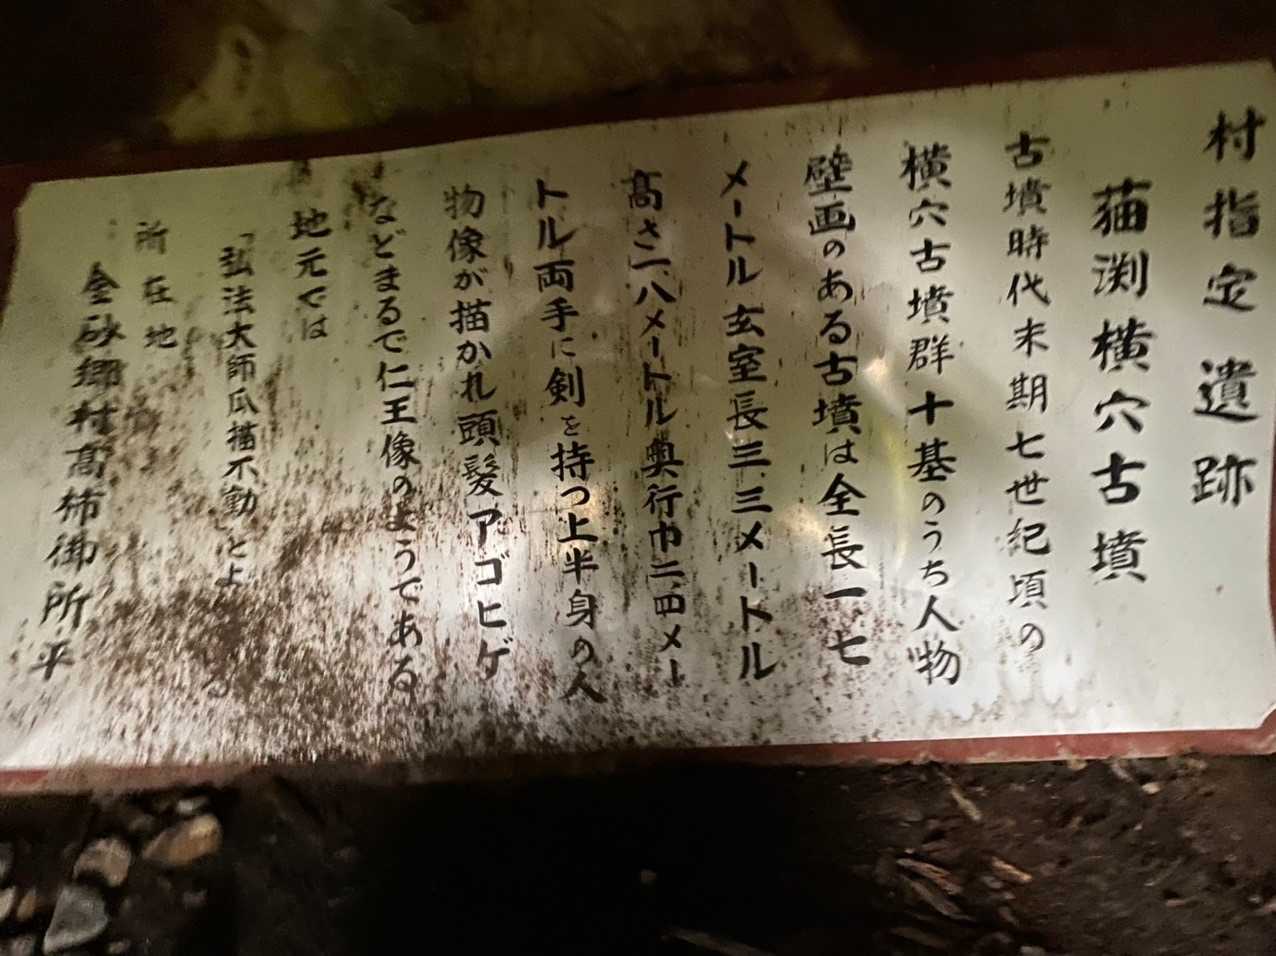 村指定遺跡
猫渕横穴古墳
古墳時代末期七世紀頃の
横穴古墳群十基のうち人物
壁画のある古墳は全長一、七
メートル玄室長三、三メートル
高さ一、八メートル奥行巾二、四メー
トル両手に剣を持つ上半身の人
物像が描かれ頭髪アゴヒゲ
などまるで仁王像のようである
地元では
「弘法大師瓜描不動とよ
る
所在地
金砂郷村高柿御所平